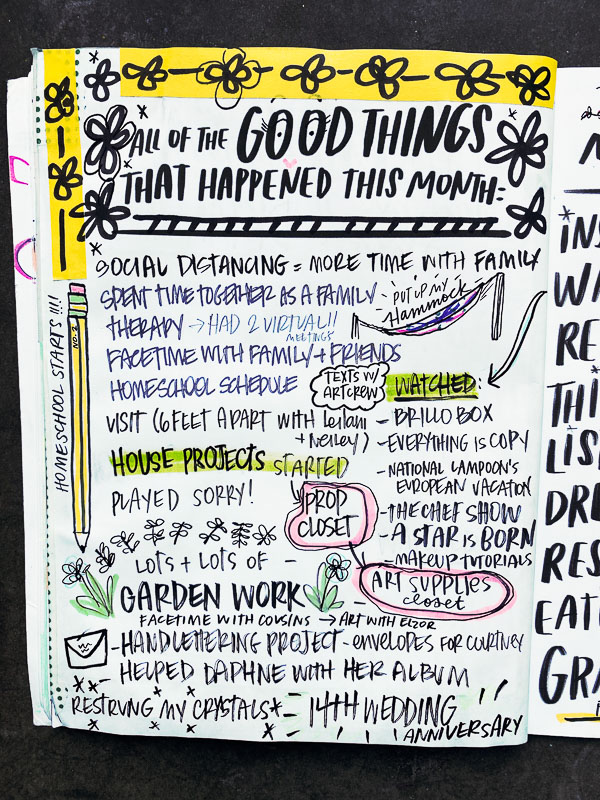 ALL OF THE GOOD THINGS
THAT HAPPENED THIS MONTH:
SOCIAL DISTANCING = MORE TIME WITH FAMILY
SPENT TIME TOGETHER AS A FAMILY
- PUT UP MY
Hammock
THERAPY → HAD 2 VIRTUAL!!
MEETINGS
FACETIME WITH FAMILY + FRIENDS
HOMESCHOOL SCHEDULE
TEXTS W/
ARTCREW
VISIT (6 FEET APART WITH Leilani
+ Nelley)
HOUSE PROJECTS STARTED
PLAYED SORRY!
PROP
CLOSET
ART SUPPLIES
closet
WATCHED:
- BRILLO BOX
- EVERYTHING IS COPY
- NATIONAL LAMPOON'S
EUROPEAN VACATION
- THE CHEF SHOW
- A STAR IS BORN
- MAKEUP TUTORIALS
HOMESCHOOL STARTS !!!!
NO. 2
LOTS + LOTS OF -
GARDEN WORK
FACETIME WITH COUSINS → ART WITH ELZOR
- HANDLETTERING PROJECT - ENVELOPES FOR COURTNEY
- HELPED DAPHNE WITH HER ALBUM
RESTRUNG MY CRYSTALS
14TH WEDDING
ANNIVERSARY